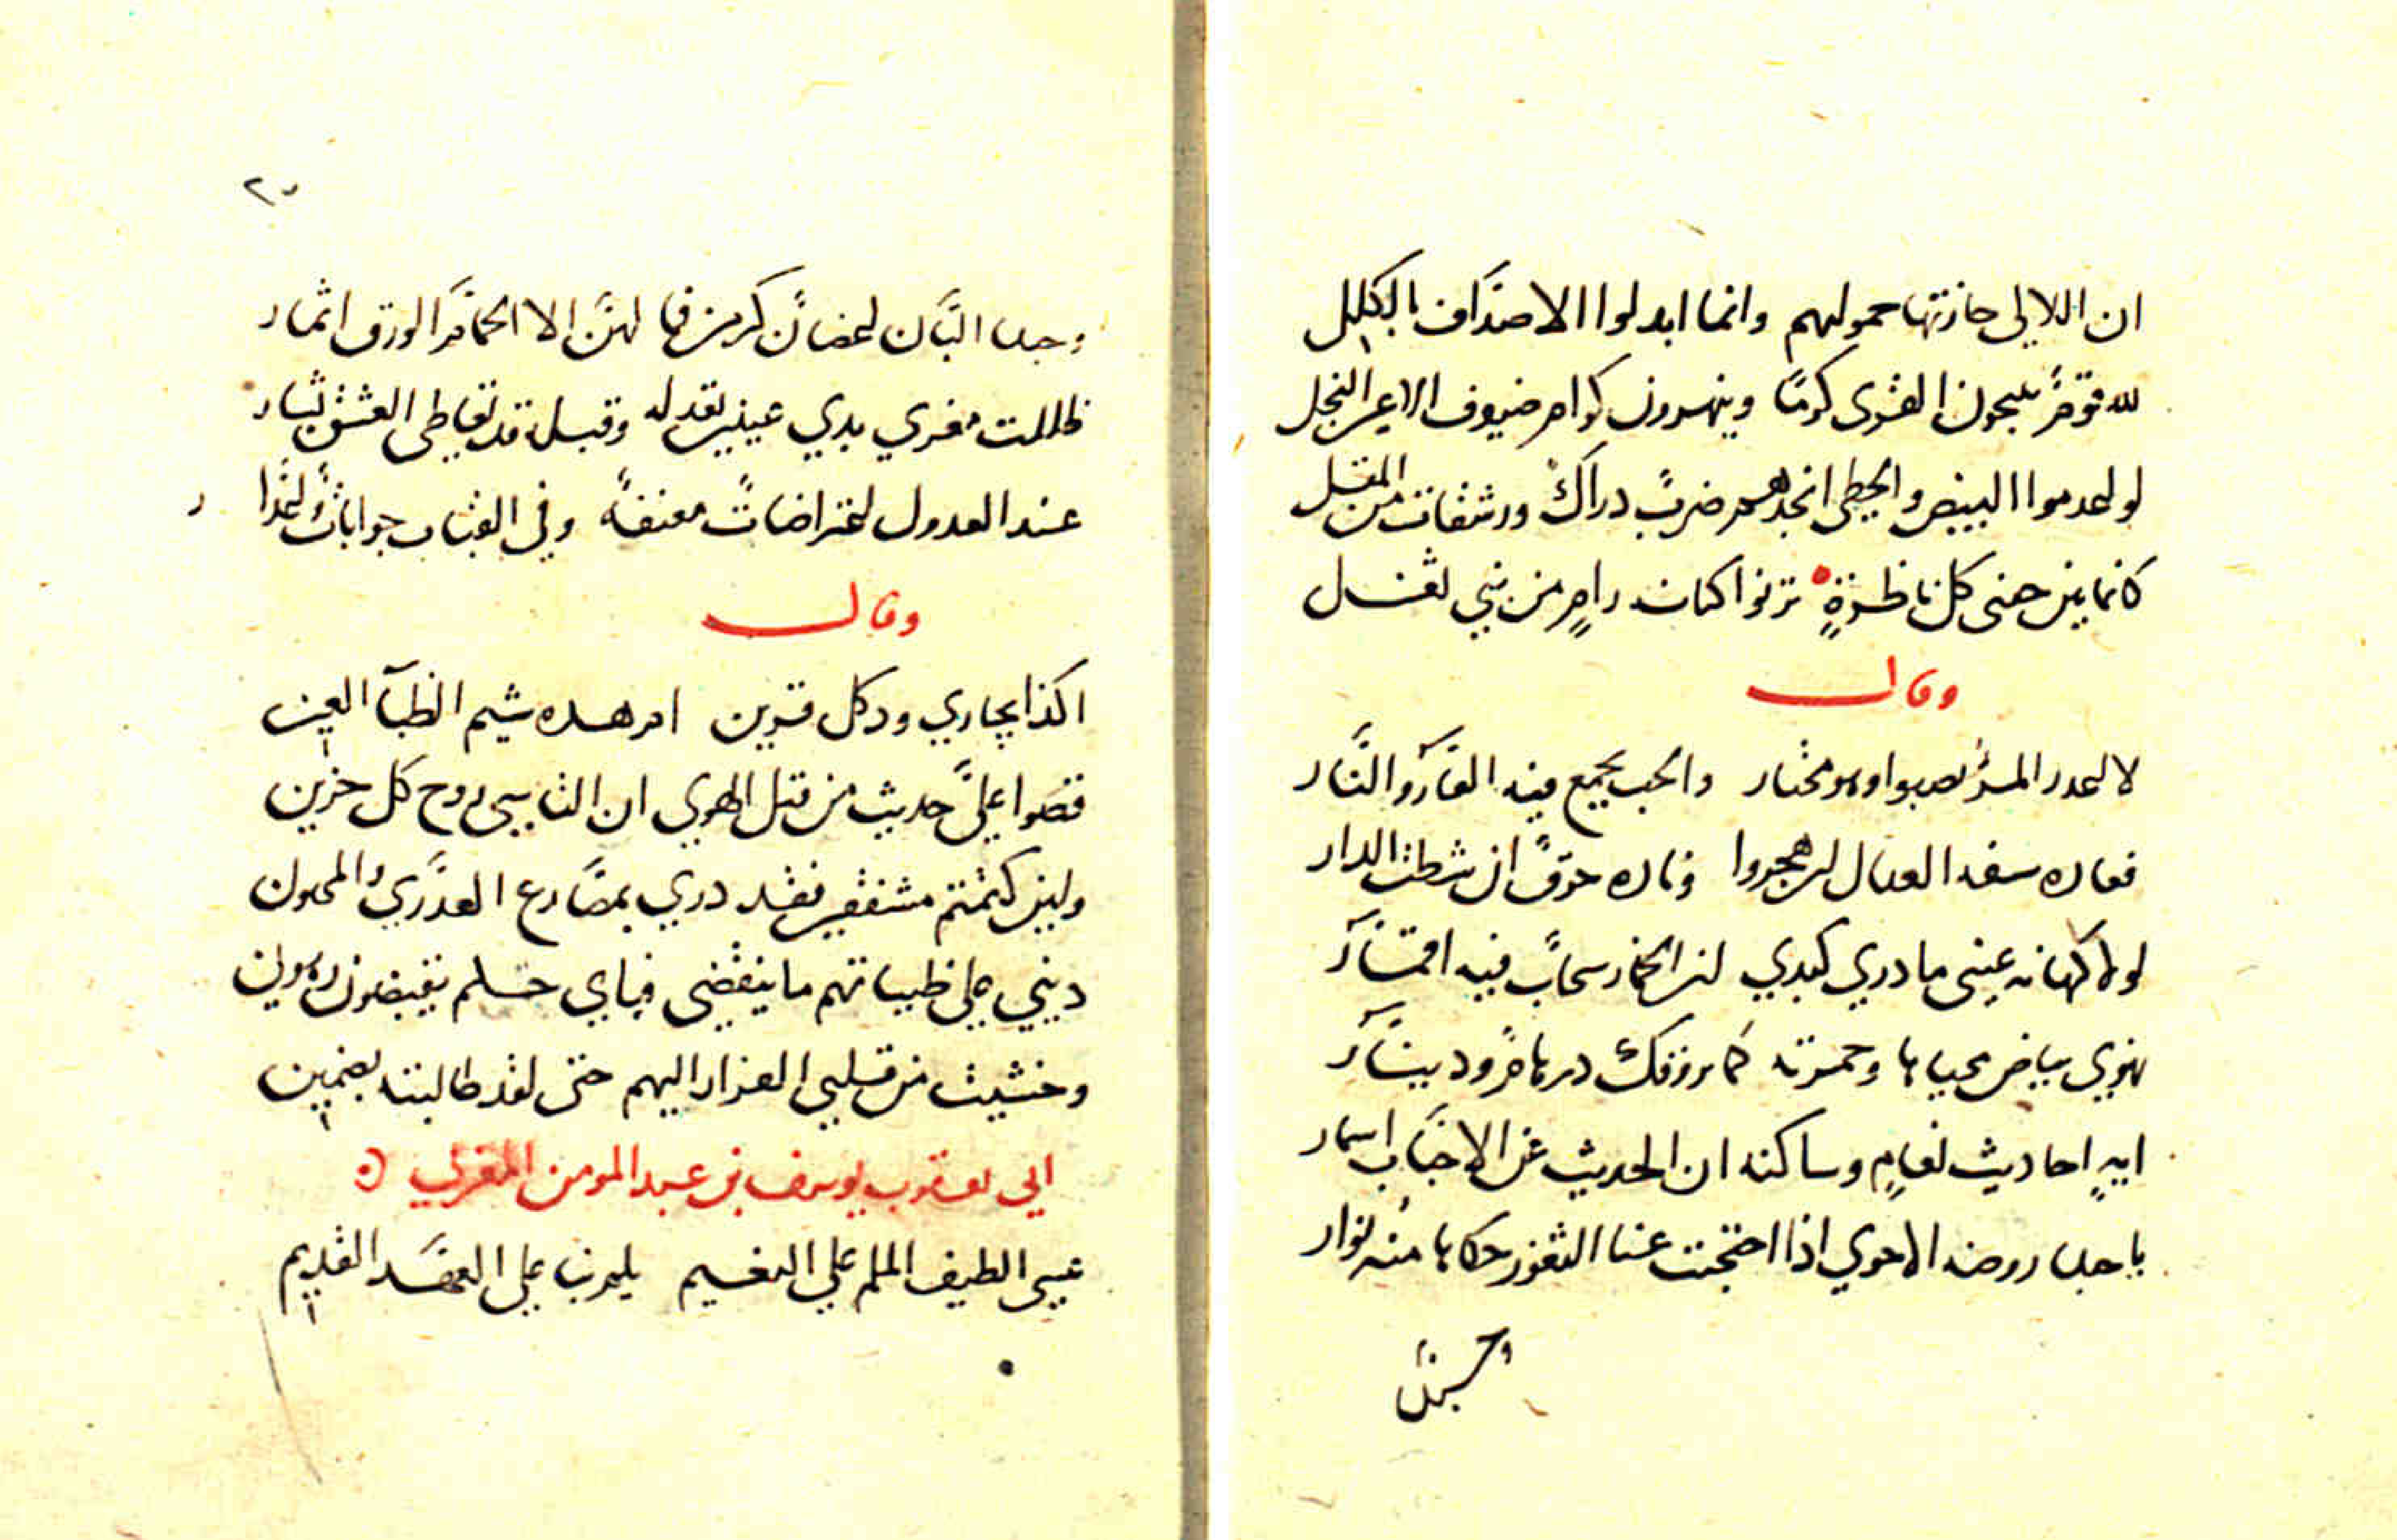 ان اللالى حازتها حمولهم وانما ابدلوا الاصداف بالكلل
لله قوم يبيحون القرى كرما وينهرون كرام ضيوف الاعين النجل
لو اعدموا البيض والخطى انجدهم ضرب دراك ورشقات من المقل
كانما بين جفنى كل ناظرة ترنوا كنانه رام من بنى ثعل
وقال
لا يعذر المرء يصبوا وهو مختار والحب يجمع فيه العار والنار
فعاره سفه العذال ان هجروا وناره حرق ان شطت الدار
لولا كهانه عينى ما درى كبدي ان الخمار سحاب فيه اقمار
نهوى بياض محياها وحمرته كما يروقك درهام ودينار
ايه احاديث نعمان وساكنه ان الحديث عن الاحباب اسمار
يا حبذا روضه الاحوى اذا احتجبت عنا الثغور حكاها منه نوار
وحبذا
وحبذا البان اغصان كرمن فما لهن الا الحمام الورق اثمار
ظللت مغرى بذي عينين تعذله وقبله قد تعاطى العشق بشار
عند العذول اعتراضات معنفه وفى العتاب جوابات واعذار
وقال
اكذا يجازي ود كل قرين ام هذه شيم الظبآ العين
قصوا على حديث من قتل الهوي ان التاسى روح كل حزين
ولين كتمتم مشفقين فقد دري بمصارع العذري والمجنون
ديني على ظبياتهم ما ينقضى فباى حكم يقبضون رهونى
وخشيت من قلبي الفرار اليهم حتى لقد طالبته بضمين
ابي يعقوب يوسف بن عبد المومن المغربي
عسى الطيف الملم على النعيم يلم بنا على العهد القديم